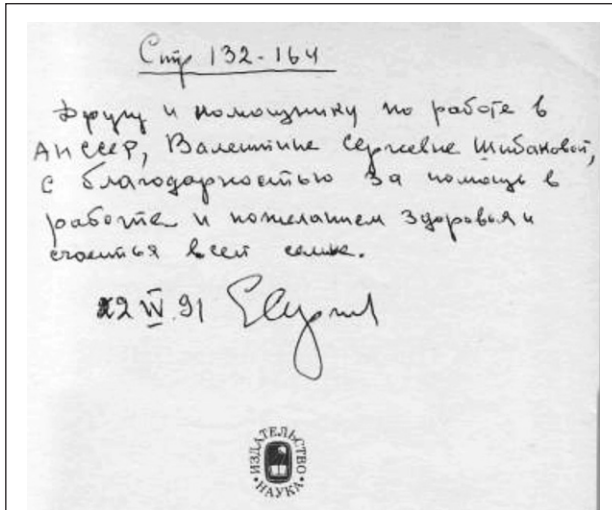 Стр 132-164
Другу и помощнику по работе в
АН СССР, Валентине Сергеевне Шибаковой,
с благодарностью за помощь в
работе и пожеланием здоровья и
счастья всей семье.
22 IV 91
ИЗДАТЕЛЬСТВО
•НАУКА•